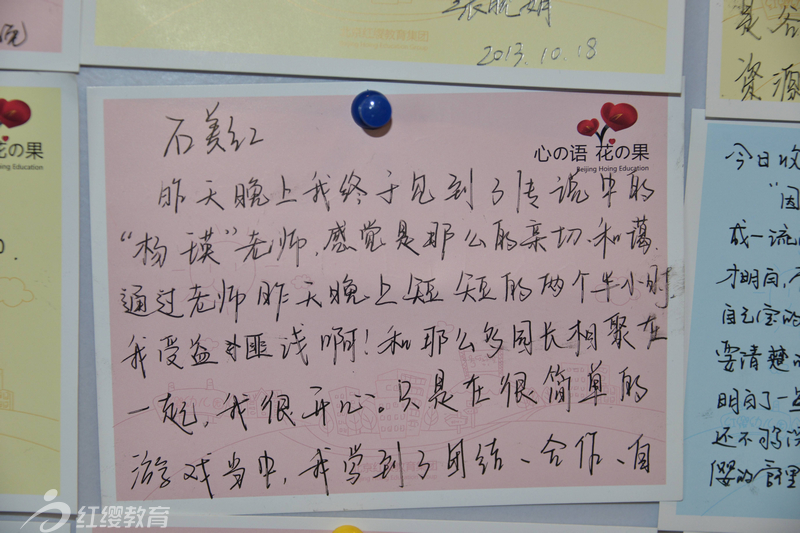 2013.10.18
是谷
资源
の果
g Education
石美红
心の语 花の果
Beijing Hoing Education
昨天晚上我终于见到了传说中的
“杨瑛”老师,感觉是那么的亲切、和蔼.
通过老师昨天晚上短短的两个半小时,
我受益匪浅啊!和那么多园长相聚在
一起,我很开心。只是在很简单的
游戏当中,我学到了团结、合作、自
今日收
“因
成一流
才明白,不
自己室的
要清楚
明白了一些
还不够深
红缨教育